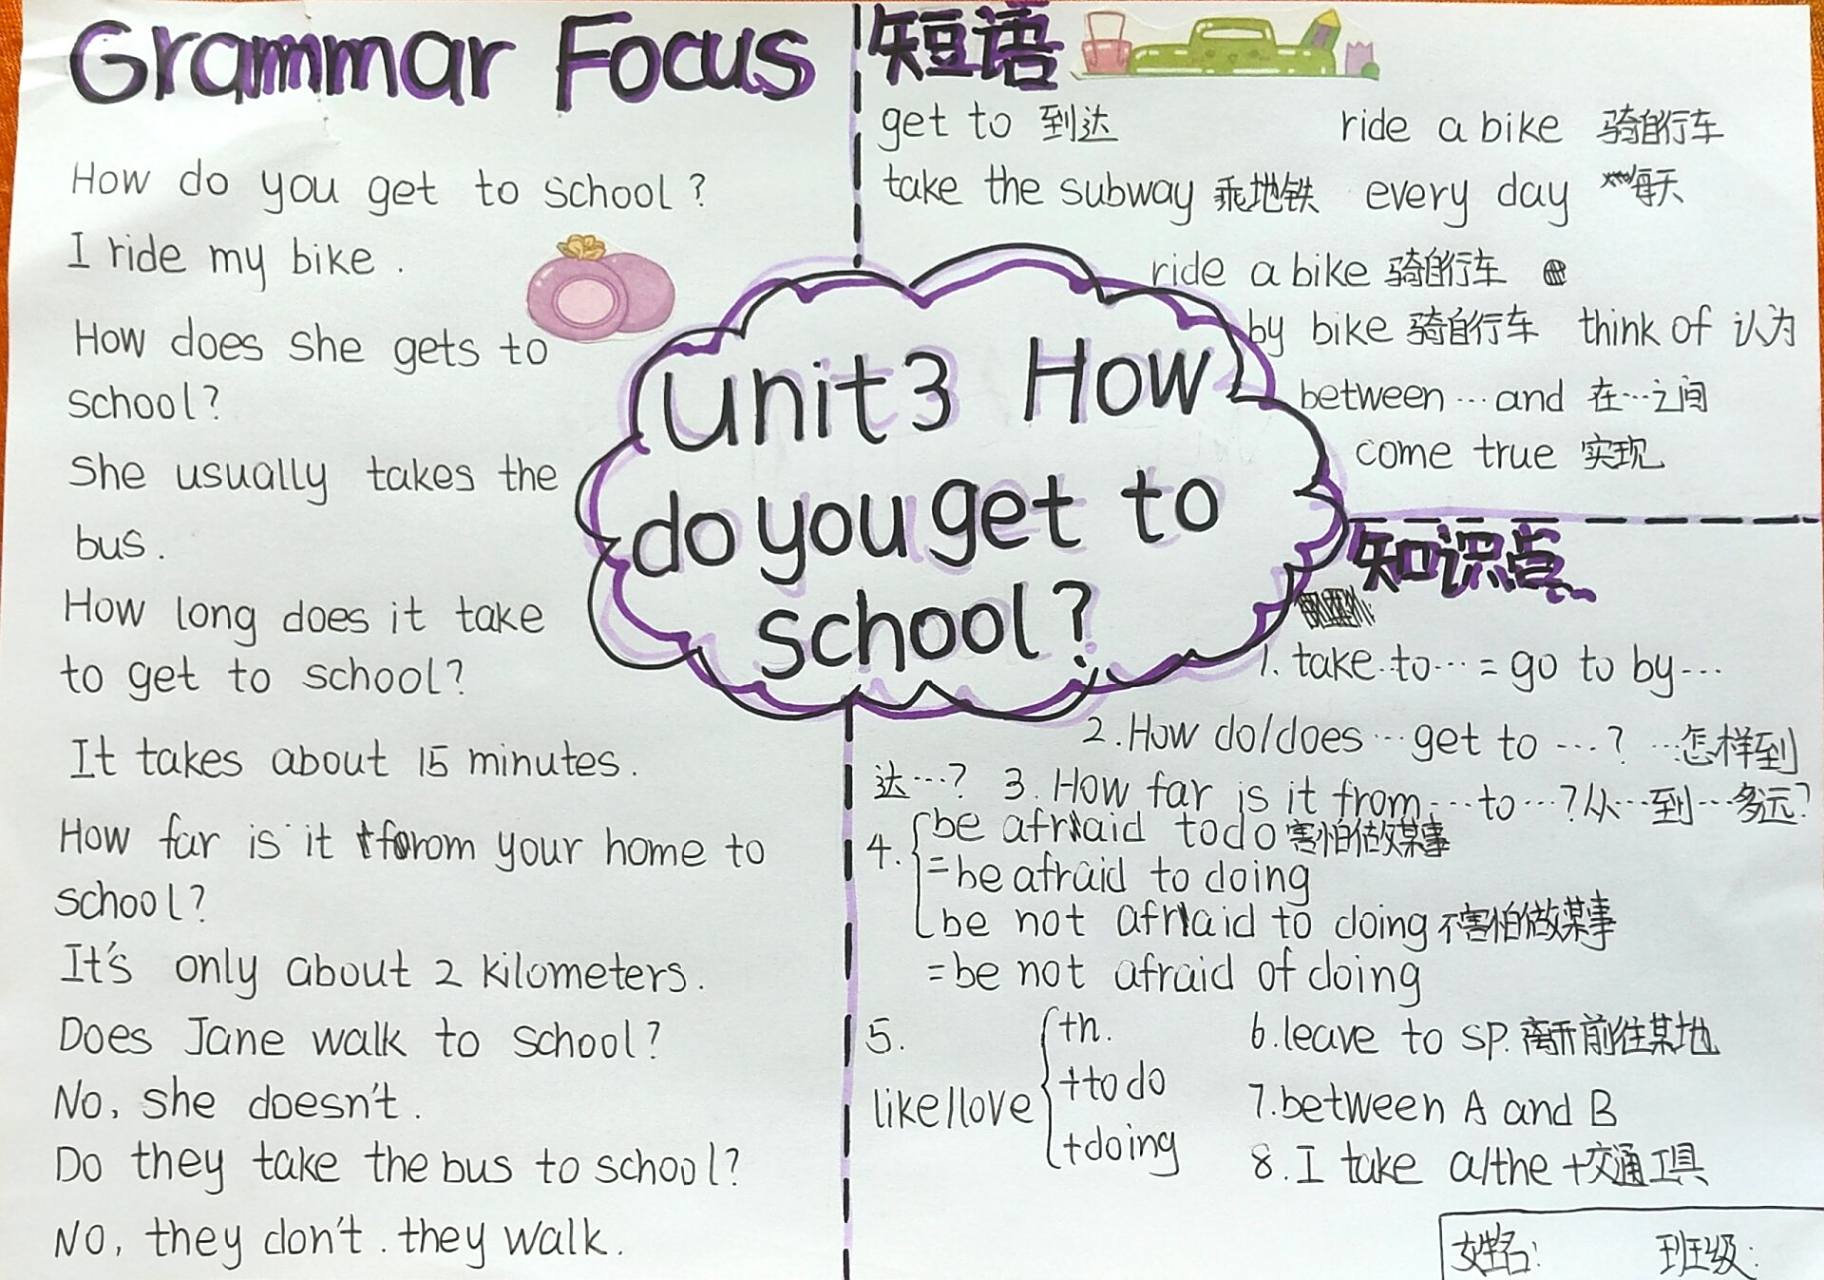 Grammar Focus
How do you get to school?
I ride my bike.
How does she gets to
school?
She usually takes the
bus.
How long does it take
to get to school?
It takes about 15 minutes.
How far is it from your home to
school?
It's only about 2 kilometers.
Does Jane walk to school?
No, she doesn't.
Do they take the bus to school?
No, they don't. they walk.
unit3 How
do you get to
school?
短语
get to 到达 ride a bike 骑自行车
take the subway 乘地铁 every day 每天
ride a bike 骑自行车
by bike 骑自行车 think of 认为
between … and 在…之间
come true 实现
知识点
1. take to… = go to by…
2. How do/does … get to …? …怎样到
达…? 3. How far is it from…to…?从…到…多远?
4. be afraid to do 害怕做某事
=be afraid to doing
be not afraid to doing 不害怕做某事
=be not afraid of doing
5.
like/love
+n.
+to do
+doing
6. leave to sp. 离开前往某地
7. between A and B
8. I take a/the +交通工具
姓名: 班级: